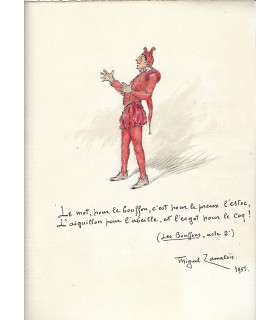 Le mot, pour le bouffon, c'est pour le preux l'estoc,
L'aiguillon pour l'abeille, et l'ergot pour le coq !
(Les Bouffons, acte 2e)
Miguel Zamacoïs.
1951.